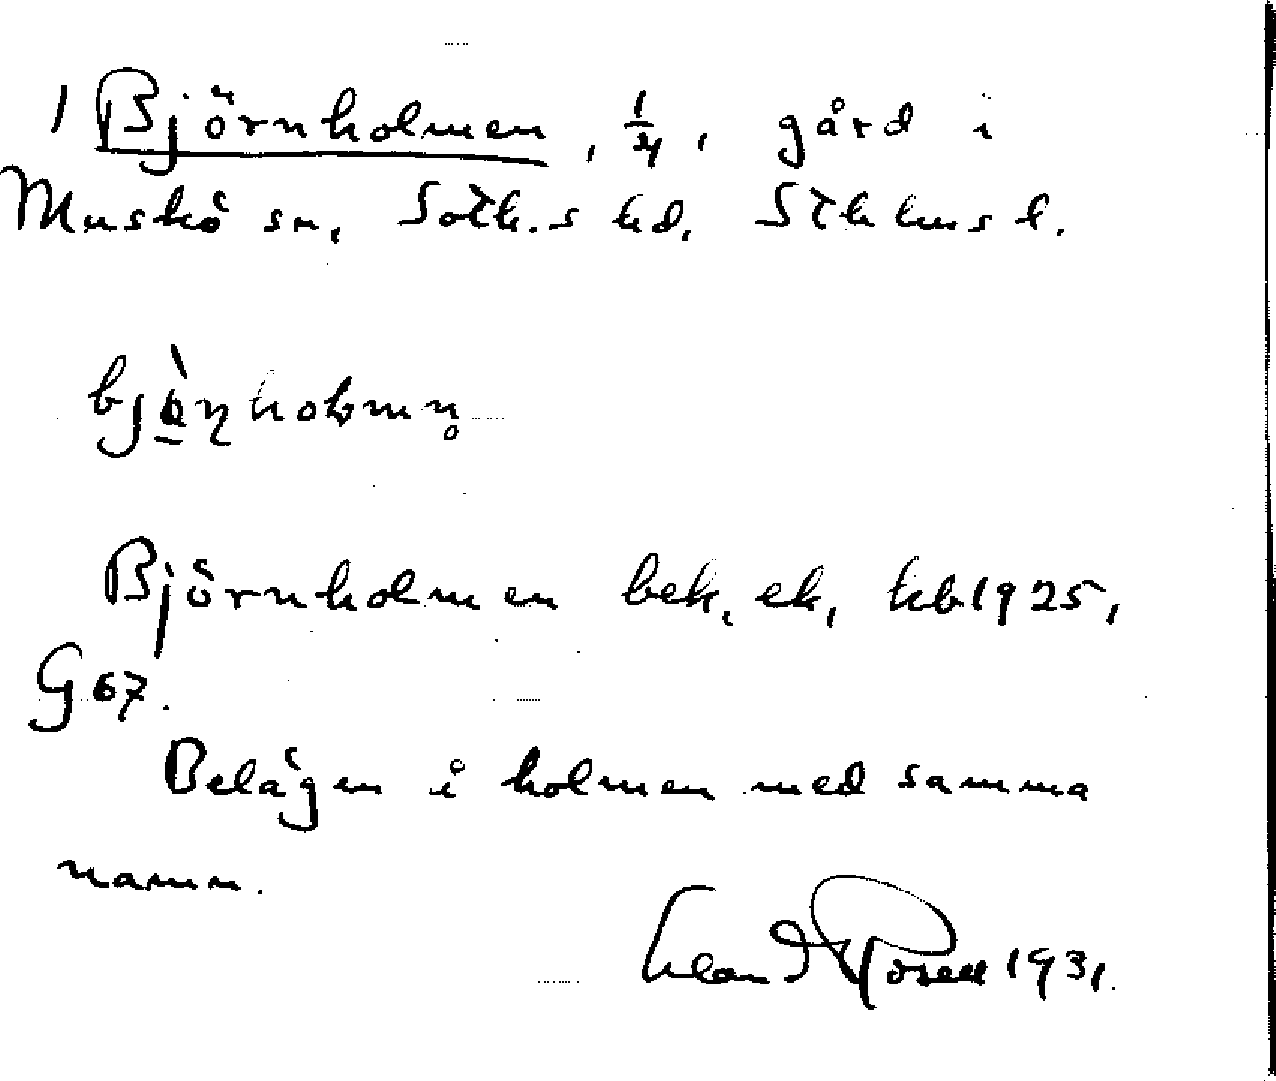 1 Björnholmen, 1/4, gård i
Muskö sn, Soth.s hd, Sthlms l.
Björnholmen bek. ek, kb 1925,
G 67.
Belägen i holmen med samma
namn.
Rosell 1931.